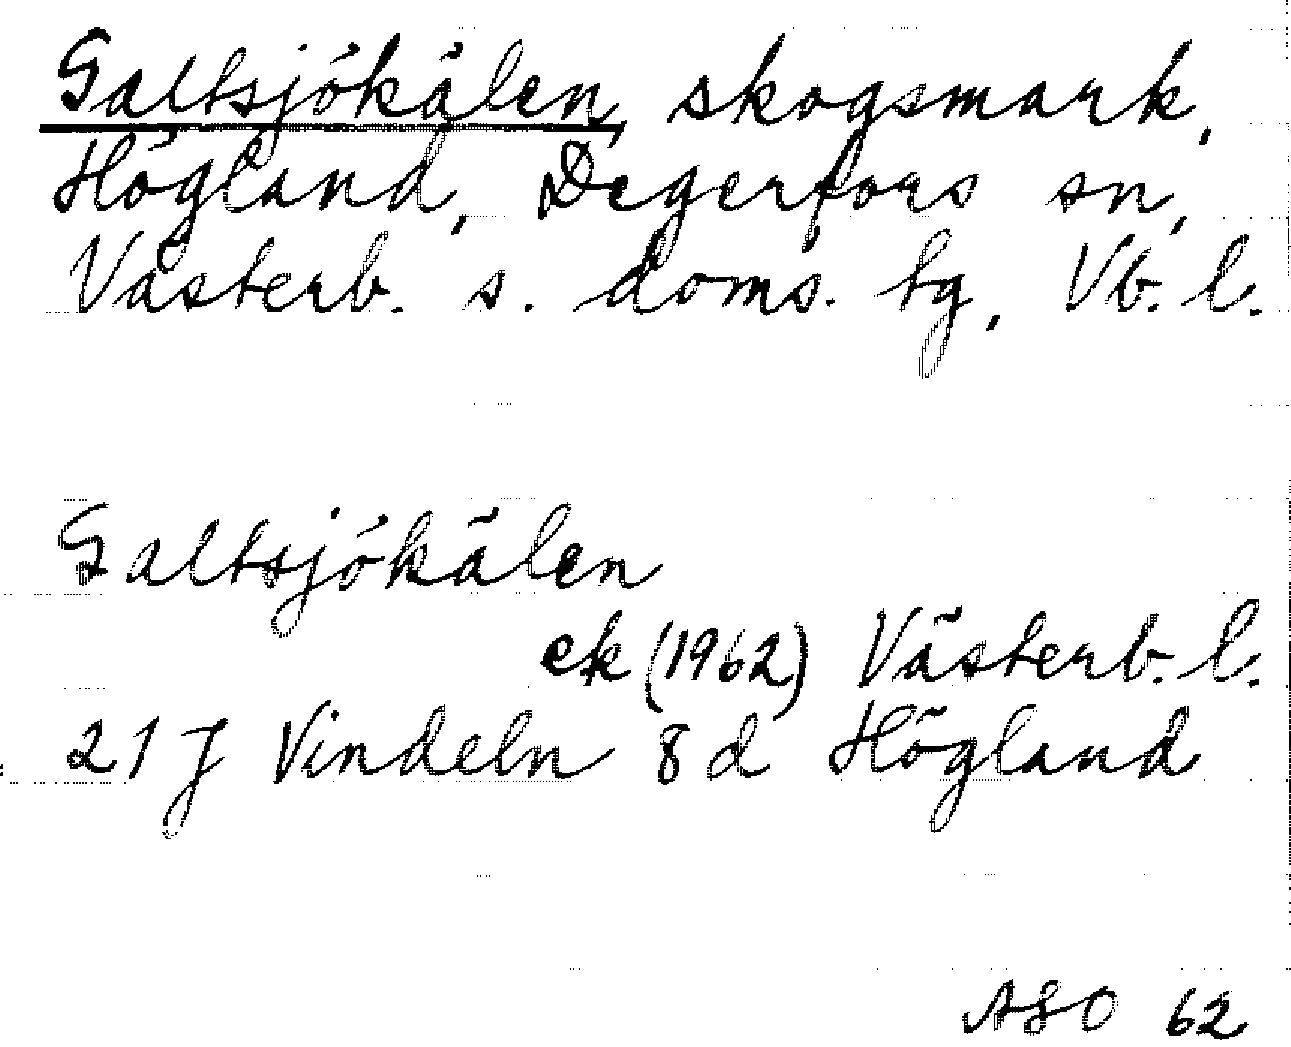 Galtsjökälen, skogsmark,
Högland, Degerfors sn,
Västerb. s. doms. tg, Vb. l.
Galtsjökälen
ek (1962) Västerb. l.
21 J Vindeln 8 d Högland
ASO 62